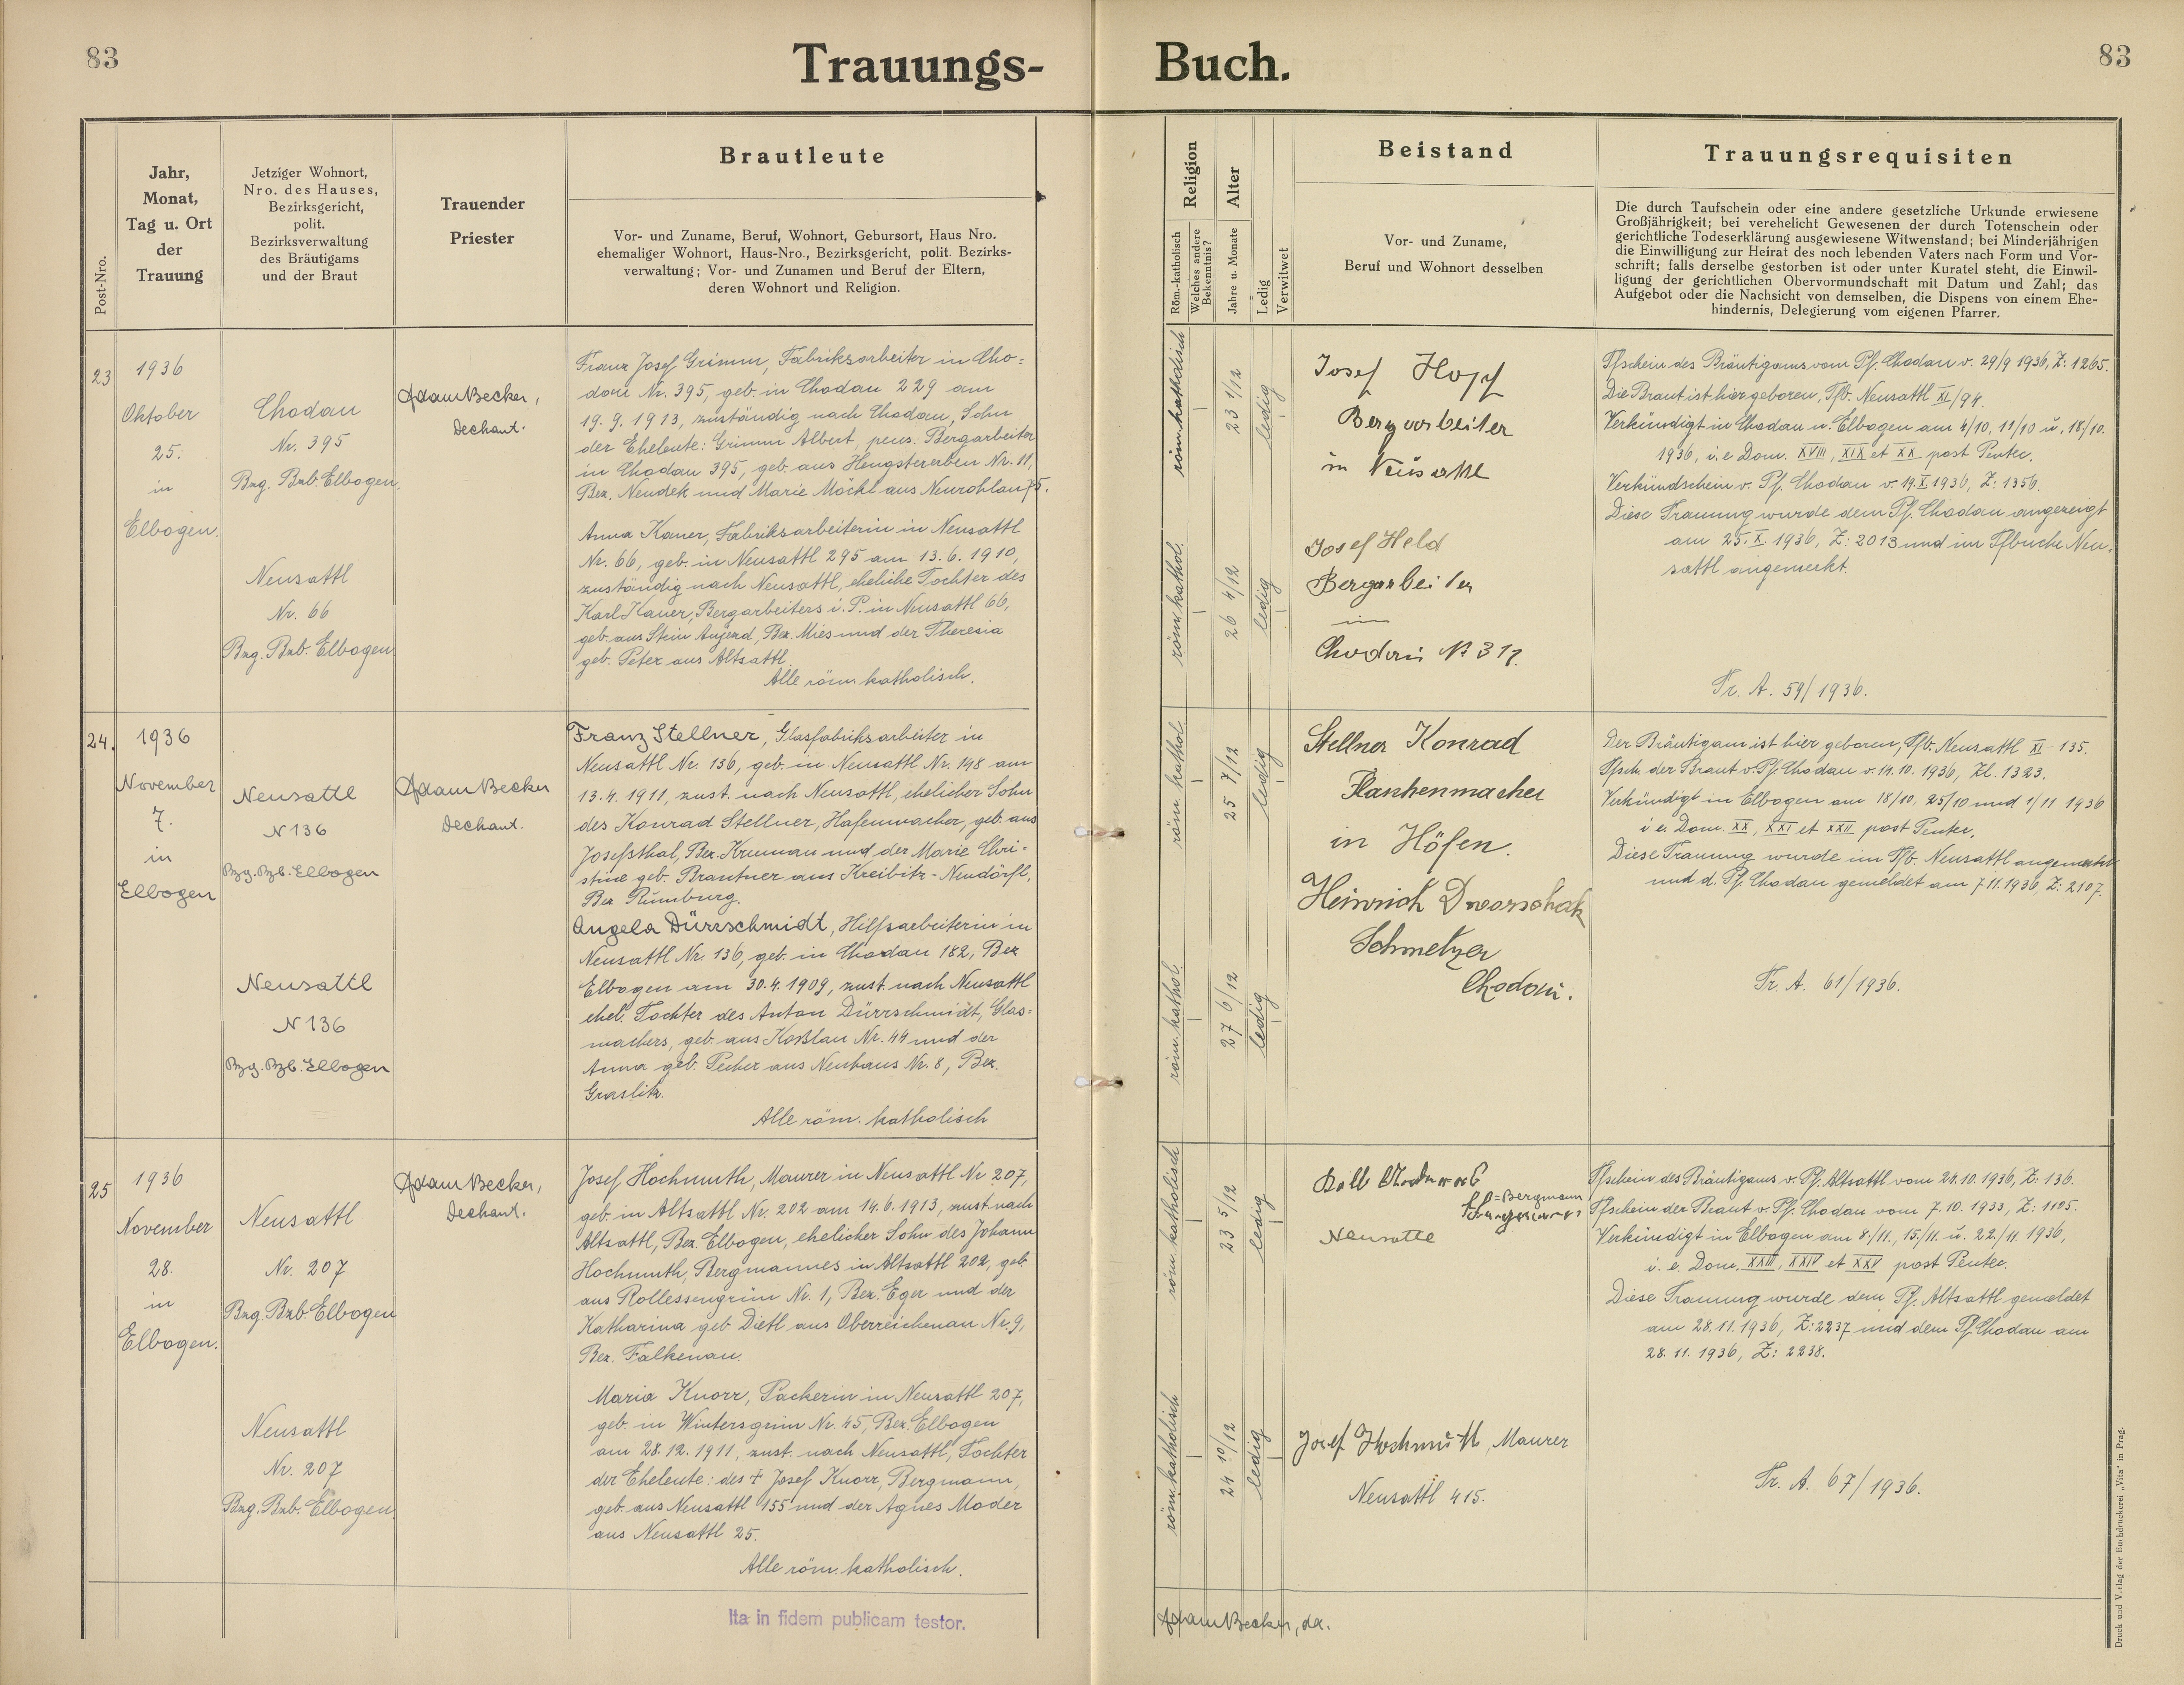 83
Trauungs-
Post-Nro.
Jahr,
Monat,
Tag u. Ort
der
Trauung
Jetziger Wohnort,
Nro. des Hauses,
Bezirksgericht,
polit.
Bezirksverwaltung
des Bräutigams
und der Braut
Trauender
Priester
Brautleute
Vor- und Zuname, Beruf, Wohnort, Geburtsort, Haus Nro.
ehemaliger Wohnort, Haus-Nro., Bezirksgericht, polit. Bezirks-
verwaltung; Vor- und Zunamen und Beruf der Eltern,
deren Wohnort und Religion.
23
1936
Oktober
25.
in
Elbogen.
Chodau
Nr. 395
Bzg. Bzb. Elbogen.
Neusattl
Nr. 66
Bzg. Bzb. Elbogen.
Adam Becker,
Dechant.
Franz Josef Grimm, Fabriksarbeiter in Cho=
dau Nr. 395, geb. in Chodau 229 am
19. 9. 1913, zuständig nach Chodau, Sohn
der Eheleute: Grimm Albert, pens. Bergarbeiter
in Chodau 395, geb. aus Hengstererben Nr. 11,
Bez. Neudek und Marie Möckl aus Neurohlau 75.
Anna Kauer, Fabriksarbeiterin in Neusattl
Nr. 66, geb. in Neusattl 295 am 13. 6. 1910,
zuständig nach Neusattl, eheliche Tochter des
Karl Kauer, Bergarbeiters i. P. in Neusattl 66,
geb. aus Stein Aujezd, Bez. Mies und der Theresia
geb. Peter aus Altsattl.
Alle röm. katholisch.
24.
1936
November
7.
in
Elbogen
Neusattl
N 136
Bzg. Bzb. Elbogen
Neusattl
N 136
Bzg. Bzb. Elbogen
Adam Becker
Dechant.
Franz Stellner, Glasfabriksarbeiter in
Neusattl Nr. 136, geb. in Neusattl Nr. 148 am
13. 4. 1911, zust. nach Neusattl, ehelicher Sohn
des Konrad Stellner, Hafenmacher, geb. aus
Josefsthal, Bez. Krumau und der Marie Chri=
stine geb. Brautner aus Kreibitz-Neudörfl,
Bez. Rumburg.
Angela Dürrschmidt, Hilfsarbeiterin in
Neusattl Nr. 136, geb. in Chodau 182, Bez
Elbogen am 30. 4. 1909, zust. nach Neusattl
ehel. Tochter des Anton Dürrschmidt, Glas=
machers, geb. aus Koßlau Nr. 44 und der
Anna geb. Pecher aus Neuhaus Nr. 8, Bez.
Graslitz.
Alle röm. katholisch
25
1936
November
28.
in
Elbogen.
Neusattl
Nr. 207
Bzg. Bzb. Elbogen
Neusattl
Nr. 207
Bzg. Bzb. Elbogen.
Adam Becker,
Dechant.
Josef Hochmuth, Maurer in Neusattl Nr 207,
geb. in Altsattl Nr. 202 am 14. 6. 1913, zust nach
Altsattl, Bez. Elbogen, ehelicher Sohn des Johann
Hochmuth, Bergmannes in Altsattl 202, geb.
aus Rollessengrün Nr. 1, Bez. Eger und der
Katharina geb Dietl aus Oberreichenau Nr. 9,
Bez. Falkenau.
Maria Knorr, Packerin in Neusattl 207,
geb. in Wintersgrün Nr. 45, Bez. Elbogen
am 28. 12. 1911, zust. nach Neusattl, Tochter
der Eheleute: des + Josef Knorr, Bergmann,
geb. aus Neusattl 155 und der Agnes Moder
aus Neusattl 25.
Alle röm. katholisch.
Ita in fidem publicam testor.
Buch.
83
Religion
Röm.-katholisch
Welches andere
Bekenntnis?
Alter
Jahre u. Monate
Ledig
Verwitwet
Beistand
Vor- und Zuname,
Beruf und Wohnort desselben
Trauungsrequisiten
Die durch Taufschein oder eine andere gesetzliche Urkunde erwiesene
Großjährigkeit; bei verehelicht Gewesenen der durch Totenschein oder
gerichtliche Todeserklärung ausgewiesene Witwenstand; bei Minderjährigen
die Einwilligung zur Heirat des noch lebenden Vaters nach Form und Vor-
schrift; falls derselbe gestorben ist oder unter Kuratel steht, die Einwil-
ligung der gerichtlichen Obervormundschaft mit Datum und Zahl; das
Aufgebot oder die Nachsicht von demselben, die Dispens von einem Ehe-
hindernis, Delegierung vom eigenen Pfarrer.
röm. katholisch
23 1/12
ledig
röm. kathol.
26 4/12
ledig
Josef Hopf
Bergarbeiter
in Neusattl
Josef Held
Bergarbeiter
in
Chodau N 317.
Tfschein des Bräutigams vom Pf. Chodau v. 29/9 1936, Z: 1265.
Die Braut ist hier geboren, Tfb. Neusattl XI/99.
Verkündigt in Chodau u. Elbogen am 4/10, 11/10 u. 18/10.
1936, i. e Dom. XVIII, XIX et XX post Pentec.
Verkündschein v. Pf. Chodau v. 19. X. 1936, Z: 1356.
Diese Trauung wurde dem Pf. Chodau angezeigt
am 25. X. 1936, Z: 2013 und im Tfbuche Neu-
sattl angemerkt.
Tr. A. 59/1936.
röm kathol.
25 7/12
ledig
röm. kathol.
27 6/12
ledig
Stellner Konrad
Flaschenmacher
in Höfen.
Heinrich Dworschak
Schmelzer
Chodau.
Der Bräutigam ist hier geboren, Tfb. Neusattl XI- 135.
Tfsch der Braut v. Pf. Chodau v. 14. 10. 1936, Zl. 1323.
Verkündigt in Elbogen am 18/10, 25/10 und 1/11 1936
i e. Dom. XX, XXI et XXII post Pentec.
Diese Trauung wurde im Tfb. Neusattl angemerkt
und d. Pf. Chodau gemeldet am 7 11. 1936, Z: 2107.
Tr. A. 61/1936.
röm. katholisch
23 5/12
ledig
röm. katholisch
24 10/12
ledig
= Bergmann
Neusattl
Josef Hochmuth, Maurer
Neusattl 415.
Tfschein des Bräutigams v. Pf. Altsattl vom 24. 10. 1936, Z: 136.
Tfschein der Braut v. Pf. Chodau vom 7. 10. 1933, Z: 1105.
Verkündigt in Elbogen am 8./11., 15./11. u. 22./11. 1936,
i. e. Dom. XXIII, XXIV et XXV post Pentec.
Diese Trauung wurde dem Pf. Altsattl gemeldet
am 28. 11. 1936, Z: 2237 und dem Pf. Chodau am
28. 11. 1936, Z: 2238.
Tr. A. 67/1936.
Adam Becker, da.
Druck und Verlag der Buchdruckerei „Vita" in Prag.